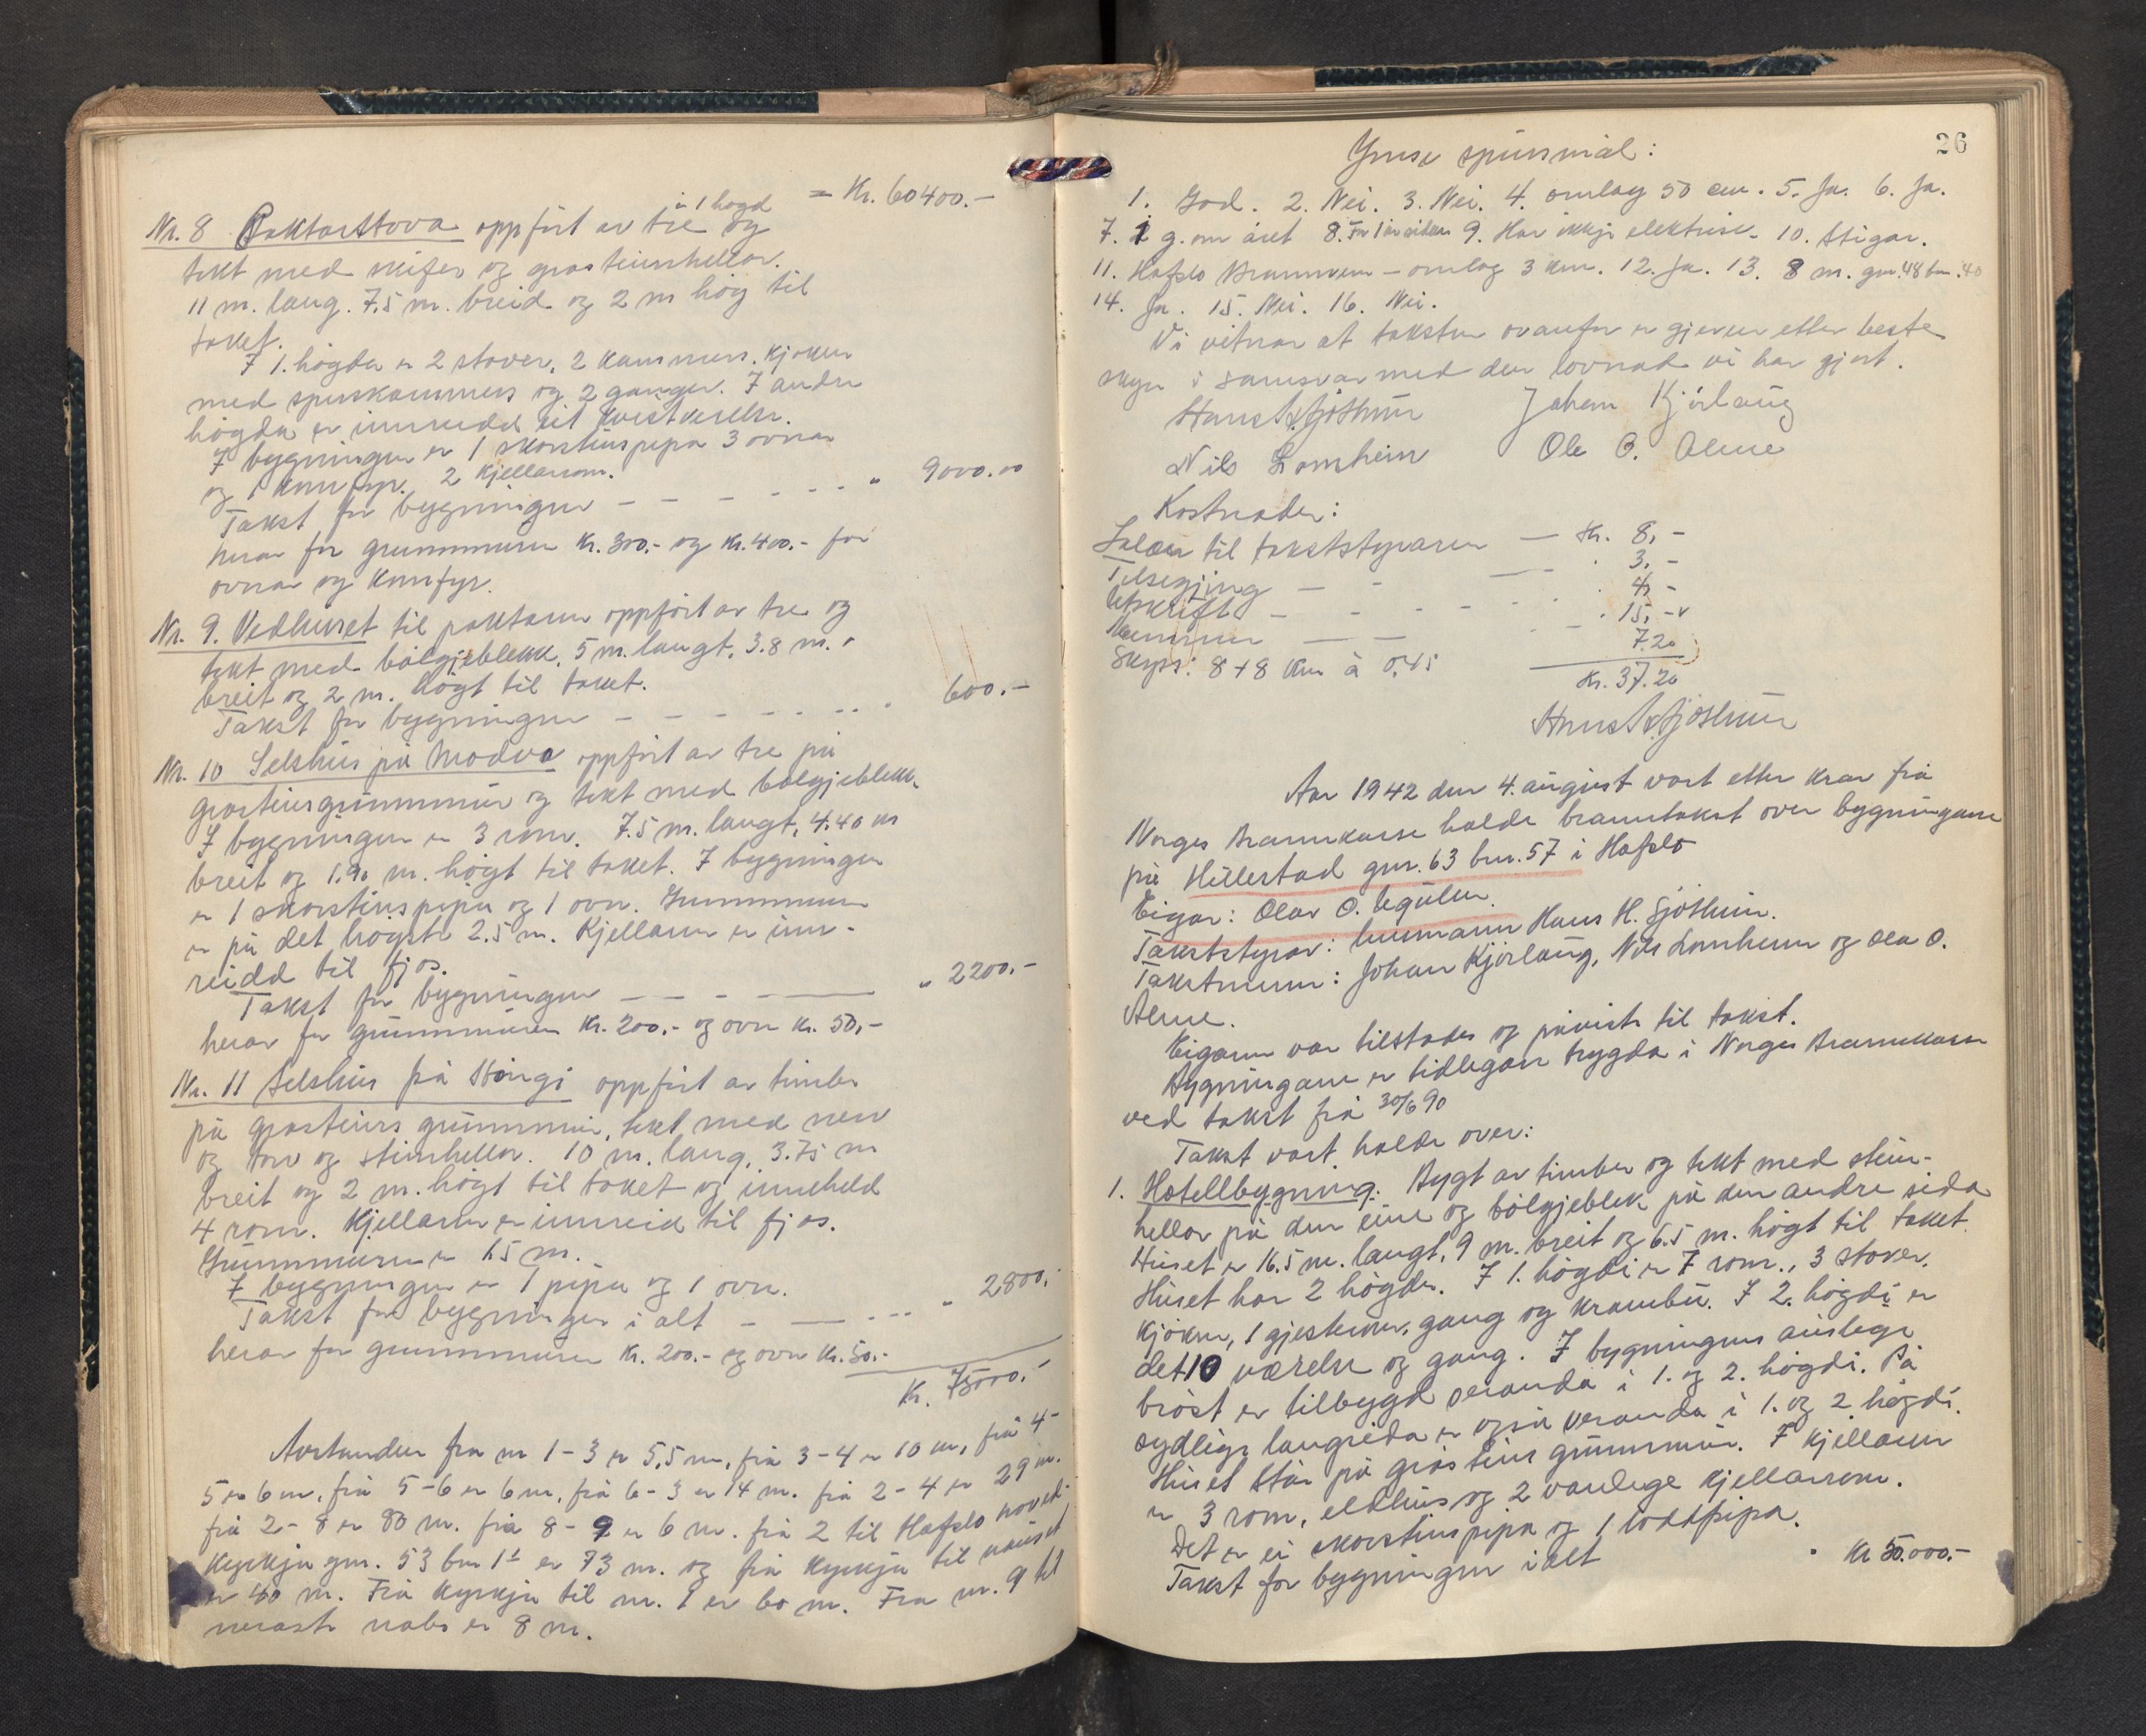 = Kr. 60400.-
Nr. 8 Paktarstova oppfört av tre i 1 högd og
tekt med skifer og grasteinshellor.
11 m. lang. 7.5 m. breid og 2 m hög til
taket.
I 1. högda er 2 stover, 2 kammers. Kjöken
med speiskammers og 2 ganger. I andre
högda er innreidd eit kvistverelse.
I bygningen er 1 skorsteinspipa 3 ovnar
og 1 komfyr. 2 Kjellarrom.
Takst for bygningen - - - - - - - " 9000.00
herav for grunnmuren Kr. 300,- og Kr. 400.- for
ovnar og Komfyr.
Nr. 9. Vedhuset til paktaren oppfört av tre og
tekt med bölgjeblekk, 5 m. langt, 3.8 m.
breit og 2 m. högt til taket.
Takst for bygningen - - - - - - - . 600.-
Nr. 10 Selshus på Modva oppfört av tre på
grasteinsgrunnmur og tekt med bölgjeblekk.
I bygningen er 3 rom. 7.5 m. langt, 4.40 m
breit og 1.90 m. högt til taket. I bygningen
er 1 skorsteinspipa og 1 ovn. Grunnmuren
er på det högste 2.5 m. Kjellaren er inn-
reidd til fjos.
Takst for bygningen - - - - " 2200.-
herav for grunnmuren Kr. 200,- og ovn Kr. 50,-
Nr. 11 Selshus på Höngi oppfört av timber
på grasteins grunnmur, tekt med never
og torv og steinhellor. 10 m. lang, 3.75 m
breit og 2 m. högt til taket og inneheld
4 rom. Kjellaren er innreid til fjos.
Grunnmuren er 1.5 m.
I bygningen er 1 pipa og 1 ovn.
Takst for bygningen i alt - - - - " 2800,-
herav for grunnmuren Kr. 200.- og ovn Kr. 50.-
Kr. 75000.-
Avstanden fra nr 1-3 er 5,5 m, frå 3-4 er 10 m, frå 4-
5 er 6 m, frå 5-6 er 6 m, frå 6-3 er 14 m. frå 2-4 er 29 m.
frå 2-8 er 80 m. frå 8-9 er 6 m. frå 2 til Hafslo hoved-
kyrkja gnr. 53 bnr 1 er 73 m. og frå kyrkja til naust
er 40 m. Frå kyrkja til nr. 1 er 60 m. Fra nr. 9 til
neraste nabo er 8 m.
26
Ymse spursmål:
1. God. 2. Nei. 3. Nei. 4. omlag 50 cm. 5. Ja. 6. Ja.
7. 1 g. om året 8. For 1 år siden 9. Har ikkje elektrisk. 10. Stigar.
11. Hafslo Brannvern - omlag 3 km. 12. Ja. 13. 8 m. gnr. 48 bnr. 40
14. Ja. 15. Nei. 16. Nei.
Vi vitnar at taksten ovanfor er gjeven etter beste
skyn i samsvar med den lovnad vi har gjort.
Hans H. Sjöthun Johan Kjörlaug
Nils Lomheim Ole O. Alme
Kostnader:
Salær til takststyraren - Kr. 8,-
Tilsegjing - - - - . 3,-
Utskrift - - - - - . 4,-
Mennene - - - - . 15,-
Skyss: 8+8 km à 0.45 7.20
Kr. 37.20
Hans H. Sjöthun
Aar 1942 den 4. august vart etter krav frå
Norges Brannkasse halde branntakst over bygningane
på Hillestad gnr. 63 bnr. 57 i Hafslo
Eigar: Olav O. Ugulen.
Takststyrar: lensmann Hans H. Sjöthun.
Takstmenn: Johan Kjörlaug, Nils Lomheim og Ola O.
Alme.
Eigaren var tilstades og påviste til takst.
Bygningane er tidlegare trygda i Norges Brannkasse
ved takst frå 30/6 90
Takst vart halde over:
1. Hotellbygning: Bygt av timber og tekt med stein-
hellor på den eine og bölgjeblek på den andre sida
Huset er 16.5 m. langt, 9 m. breit og 6.5 m. högt til taket.
Huset har 2 högder. I 1. högdi er 7 rom., 3 stover,
kjöken, 1 gjesterom, gang og krambu. I 2. högdi er
det 10 værelse og gang. I bygningens austlege
bröst er tilbygd veranda i 1. og 2. högdi. På
sydlige langsida er også veranda i 1. og 2 högdi.
Huset står på gråsteins grunnmur. I kjellaren
er 3 rom, eldhus og 2 vanlege kjellarrom.
Det er ei skorsteinspipa og 1 loddpipa.
Takst for bygningen i alt . Kr 30.000.-